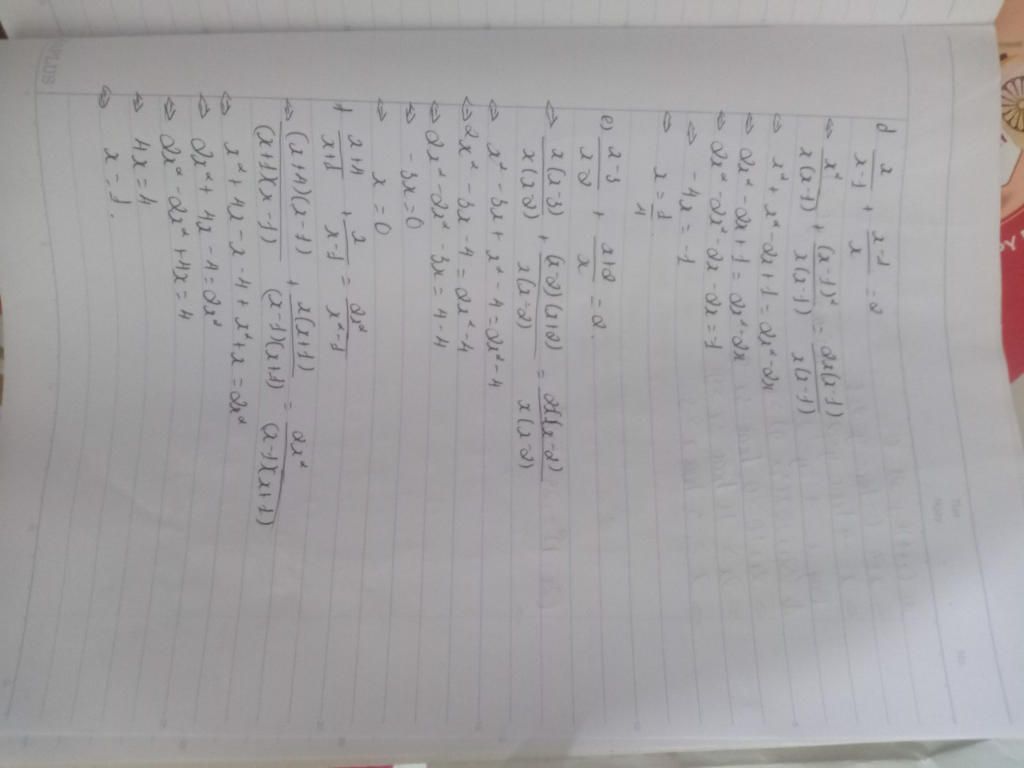 d) x/(x-1) + (x-1)/x = 2
⇔ x²/x(x-1) + (x-1)²/x(x-1) = 2x(x-1)/x(x-1)
⇔ x² + x² - 2x + 1 = 2x² - 2x
⇔ 2x² - 2x + 1 = 2x² - 2x
⇔ 2x² - 2x² - 2x - 2x = -1
⇔ -4x = -1
⇔ x = 1/4
e) (x-3)/(x-2) + (x+2)/x = 2.
⇔ x(x-3)/x(x-2) + (x-2)(x+2)/x(x-2) = 2x(x-2)/x(x-2)
⇔ x² - 3x + x² - 4 = 2x² - 4
⇔ 2x² - 3x - 4 = 2x² - 4
⇔ 2x² - 2x² - 3x = 4 - 4
⇔ -3x = 0
⇔ x = 0
f (x+4)/(x+1) + x/(x-1) = 2x²/(x²-1)
⇔ (x+4)(x-1)/(x+1)(x-1) + x(x+1)/(x-1)(x+1) = 2x²/(x-1)(x+1)
⇔ x² + 4x - x - 4 + x² + x = 2x²
⇔ 2x² + 4x - 4 = 2x²
⇔ 2x² - 2x² + 4x = 4
⇔ 4x = 4
⇔ x = 1.